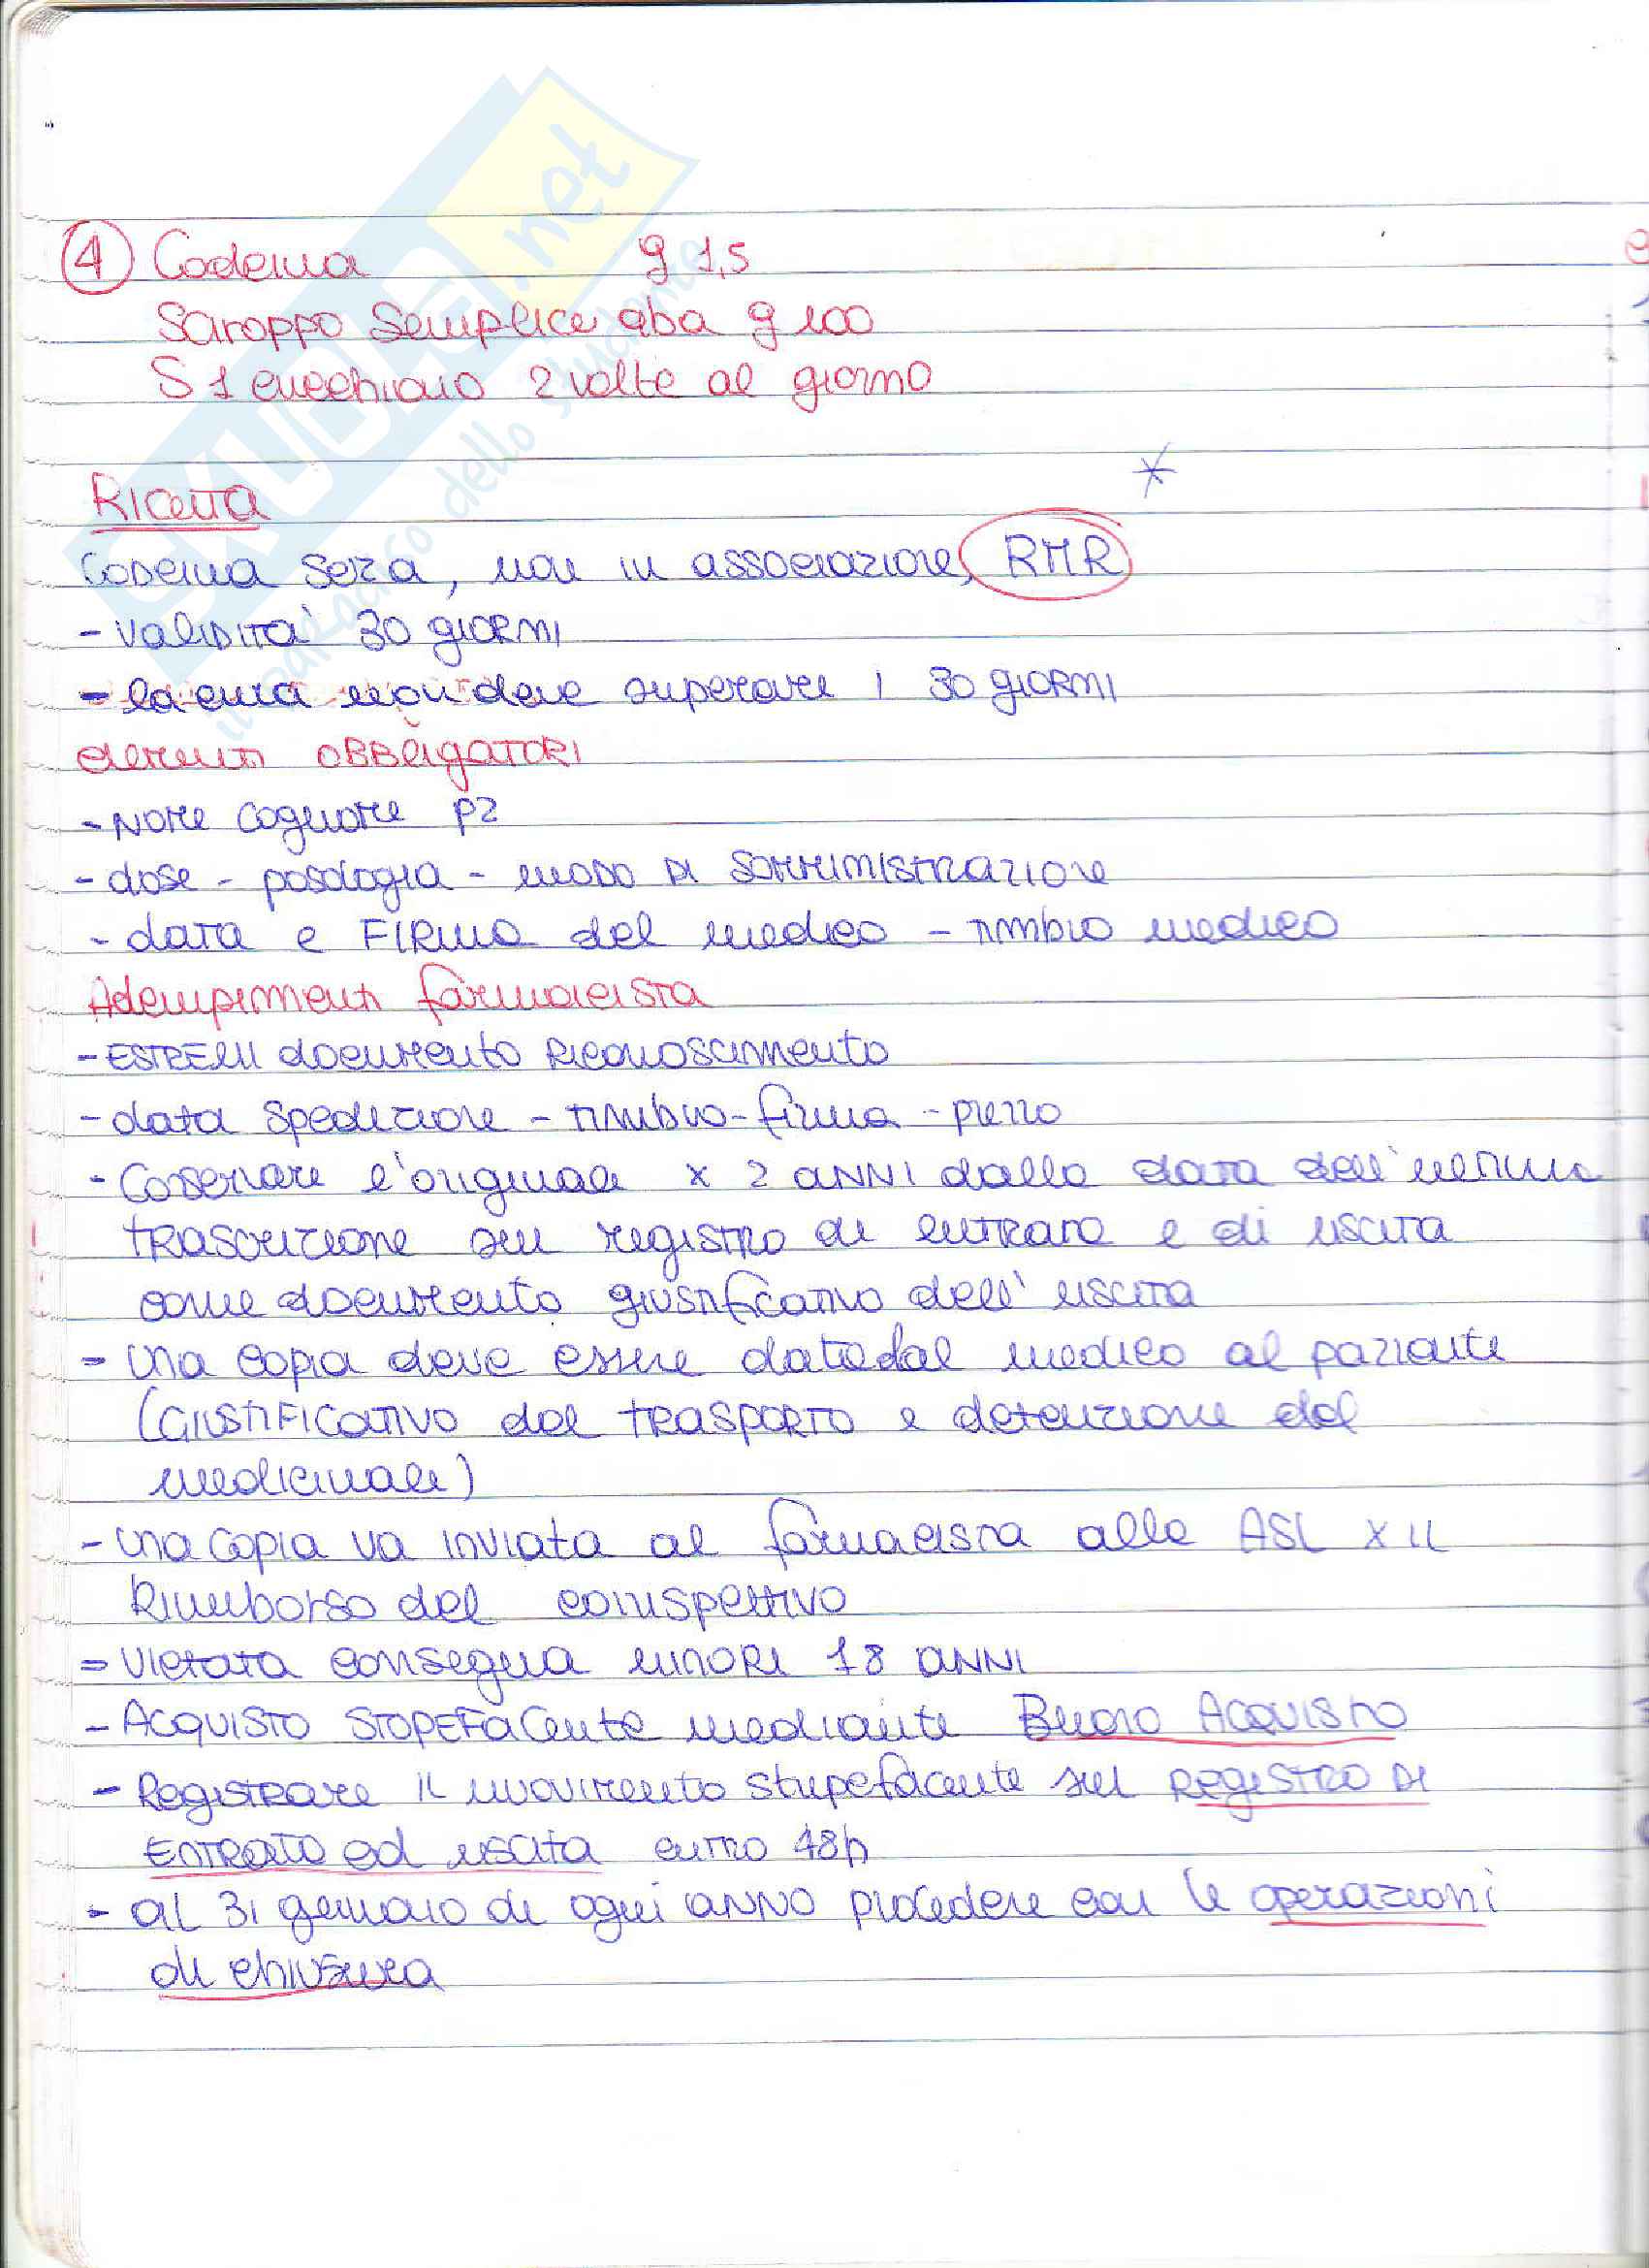 4 Codeina g 1,5
Sciroppo Semplice aba g 100
S 1 cucchiaio 2 volte al giorno
*
Ricetta
Codeina soza, non in associazione, RMR
- Validità 30 giorni
- la cura non deve superare i 30 giorni
elementi obbligatori
- Nome cognome pz
- dose - posologia - modo di somministrazione
- data e firma del medico - timbro medico
Adempimenti farmacista
- ESTREMI documento riconoscimento
- data spedizione - timbro - firma - prezzo
- Conservare l'originale x 2 anni dalla data dell'ultima
trascrizione sul registro di entrata e di uscita
come documento giustificativo dell'uscita
- una copia deve essere data dal medico al paziente
(giustificativo del trasporto e detenzione del
medicinale)
- una copia va inviata al farmacista alla ASL x il
Rimborso del corrispettivo
- Vietata consegna minori 18 anni
- Acquisto stopefacente mediante Buono Acquisto
- Registrare il movimento stupefacente sul registro di
entrata ed uscita entro 48h
- al 31 gennaio di ogni anno procedere con le operazioni
di chiusura
SKUOLA.net
il paradiso dello studente